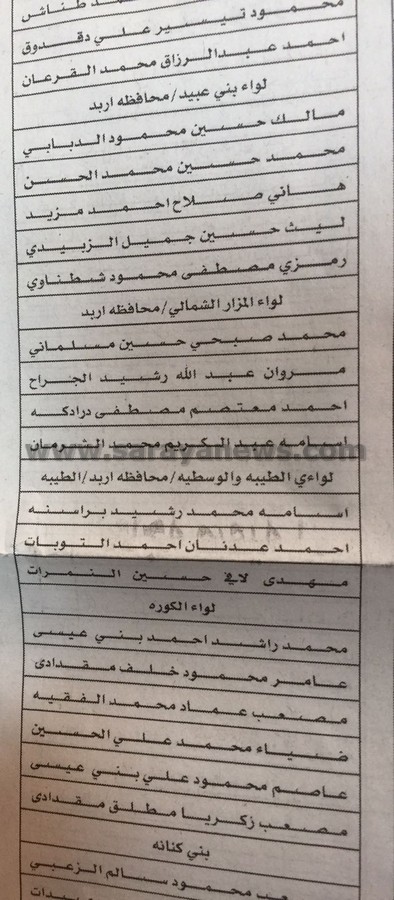 طناش
محمود تيسير علي دقدوق
احمد عبدالرزاق محمد القرعان
لواء بني عبيد/محافظه اربد
مالك حسين محمود الدبابي
محمد حسين محمد الحسن
هاني صلاح احمد مزيد
ليث حسين جميل الزبيدي
رمزي مصطفى محمود شطناوي
لواء المزار الشمالي/محافظه اربد
محمد صبحي حسين مسلماني
مروان عبد الله رشيد الجراح
احمد معتصم مصطفى درادكه
اسامه عبد الكريم محمد الشرمان
www.sarayanews.com
لواءي الطيبه والوسطيه/محافظه اربد/الطيبه
اسامه محمد رشيد براسنه
احمد عدنان احمد التوبات
مهدى لافي حسين النمرات
لواء الكوره
محمد راشد احمد بني عيسى
عامر محمود خلف مقدادى
مصعب عماد محمد الفقيه
ضياء محمد علي الحسين
عاصم محمود علي بني عيسى
مصعب زكريا مطلق مقدادى
بني كنانه
محمود سالم الزعبي